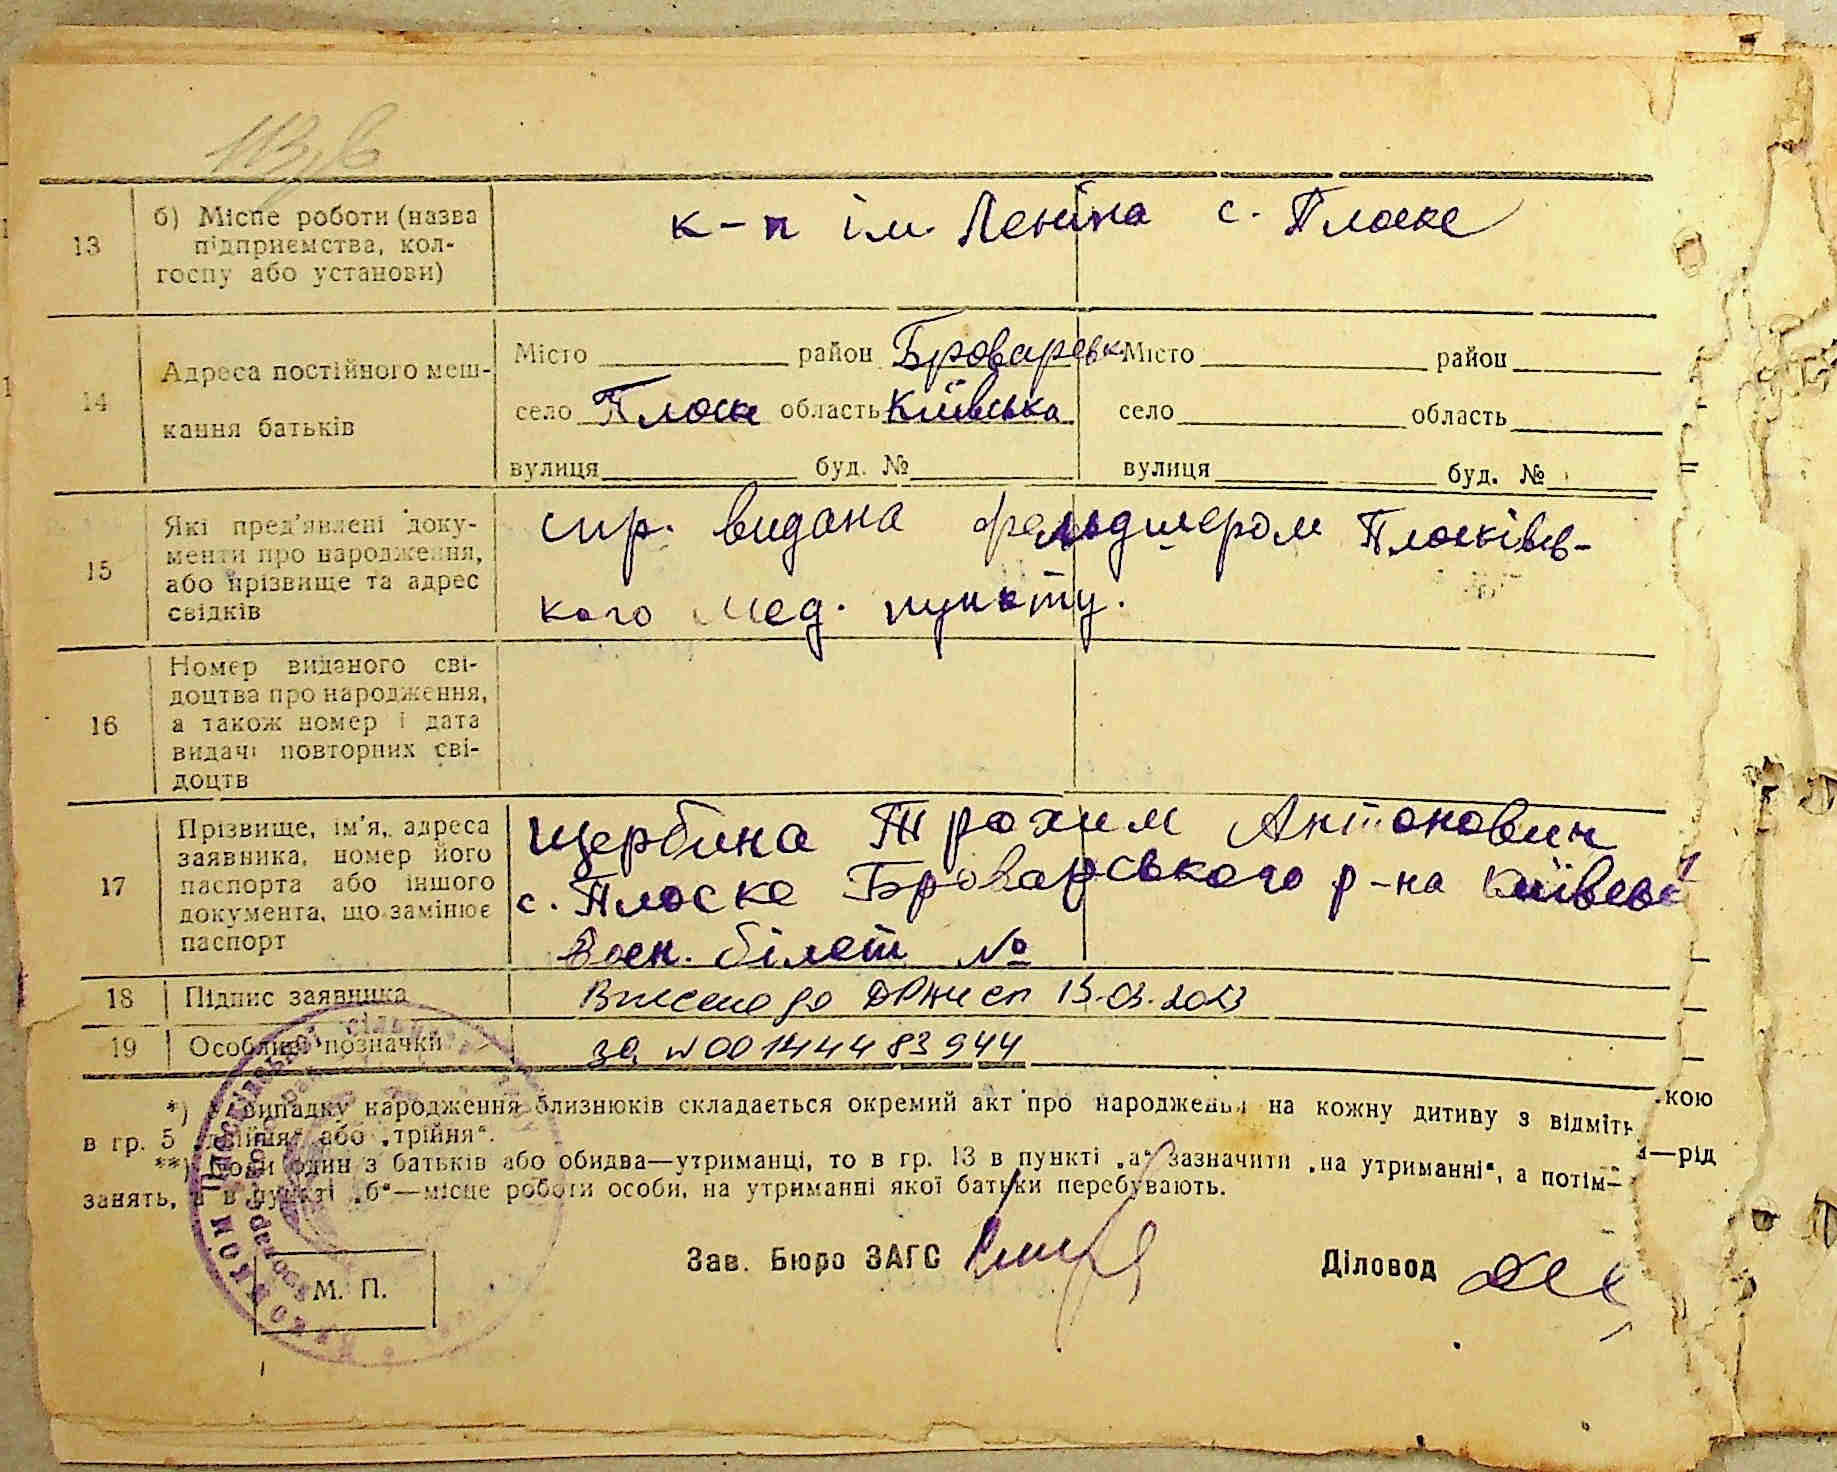 13
б) Місце роботи (назва
підприємства, кол-
госпу або установи)
к-п ім. Леніна с. Плоске
14
Адреса постійного меш-
кання батьків
Місто район Броварськ Місто район
село Плоске область Київська село область
вулиця буд. № вулиця буд. №
15
Які пред'явлені доку-
менти про народження,
або прізвище та адрес
свідків
спр. видана фельдшером Плосківсь-
кого мед. пункту.
16
Номер виданого сві-
доцтва про народження,
а також номер і дата
видачі повторних сві-
доцтв
17
Прізвище, ім'я, адреса
заявника, номер його
паспорта або іншого
документа, що замінює
паспорт
Щербина Трохим Антонович
с. Плоске Броварського р-на Київсь
Воєн. білет №
18 Підпис заявника
Внесено до ДРАЦСГ 13.03.2023
19 Особливі позначки
за №00144483944
*) У випадку народження близнюків складається окремий акт про народження на кожну дитину з відміт кою
в гр. 5 „двійня“ або „трійня“.
**) Коли один з батьків або обидва—утриманці, то в гр. 13 в пункті „а“ зазначити „на утриманні“, а потім—рід
занять, а в пункті „б“—місце роботи особи, на утриманні якої батьки перебувають.
Зав. Бюро ЗАГС Діловод
М. П.